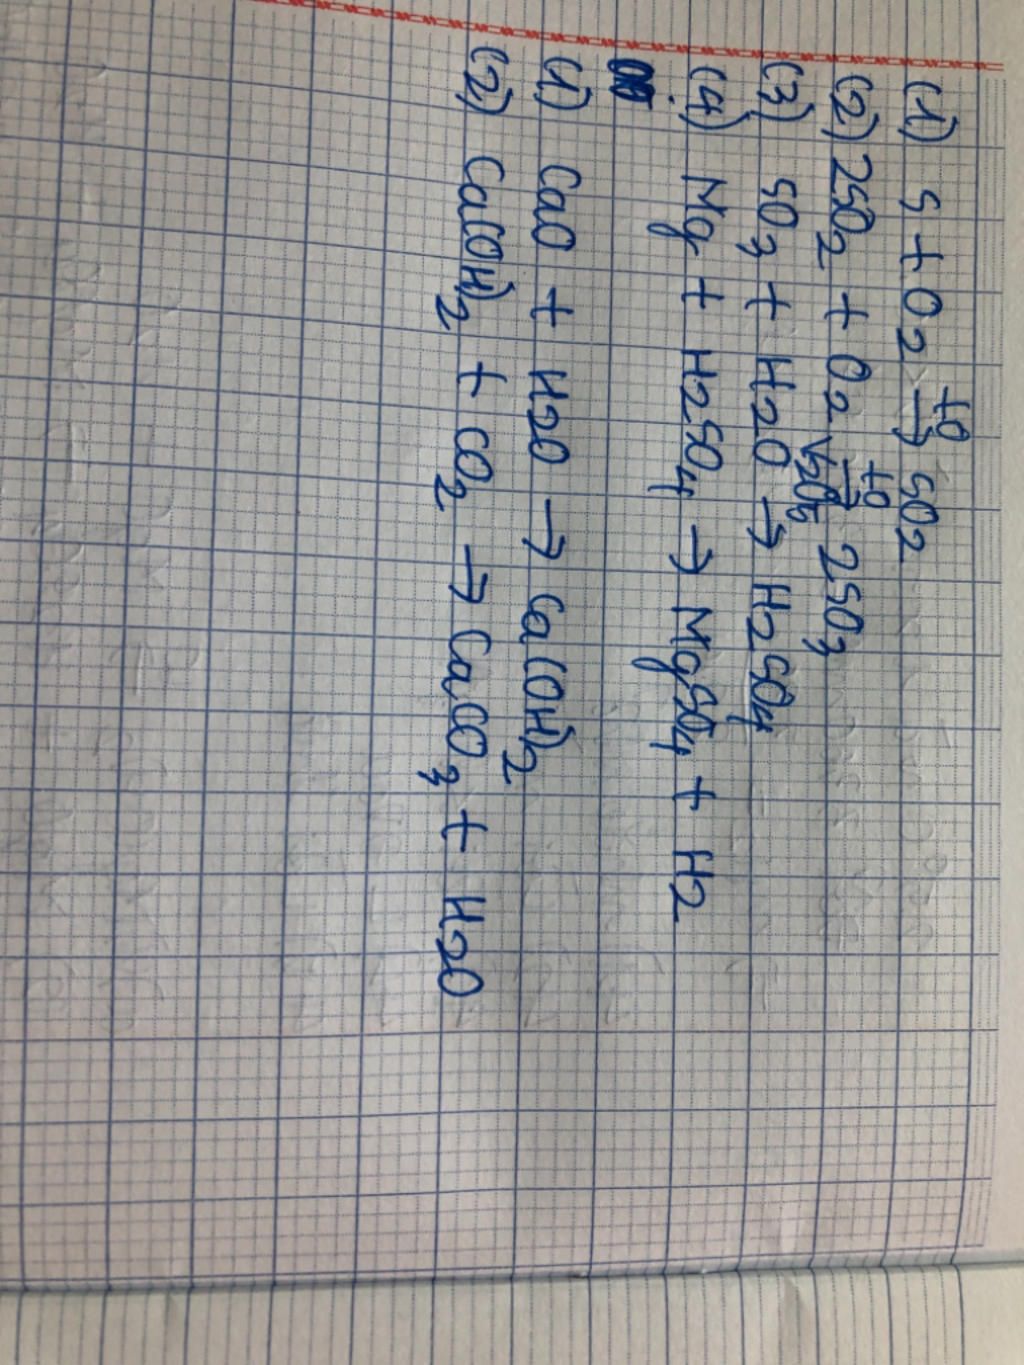 (1) S + O2 t0→ SO2
(2) 2SO2 + O2 t0→ V2O5 2SO3
(3) SO3 + H2O → H2SO4
(4) Mg + H2SO4 → MgSO4 + H2
(1) CaO + H2O → Ca(OH)2
(2) Ca(OH)2 + CO2 → CaCO3 + H2O